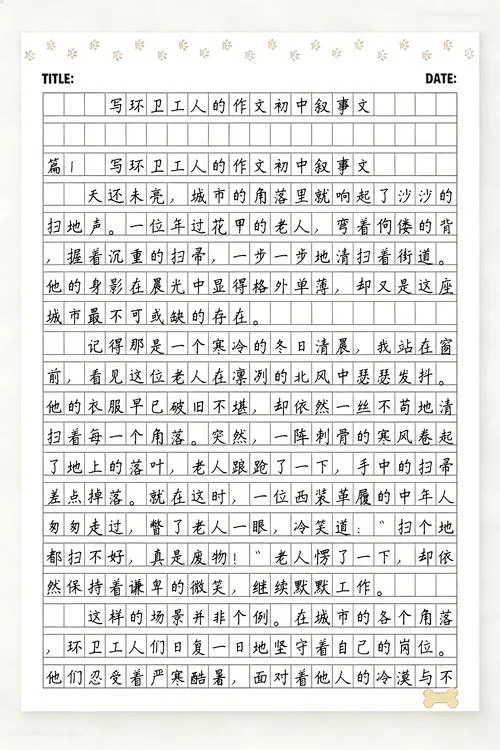 TITLE: DATE:
写环卫工人的作文初中叙事文
篇1 写环卫工人的作文初中叙事文
天还未亮，城市的角落里就响起了沙沙的
扫地声。一位年过花甲的老人，弯着佝偻的背
，握着沉重的扫帚，一步一步地清扫着街道。
他的身影在晨光中显得格外单薄，却又是这座
城市最不可或缺的存在。
记得那是一个寒冷的冬日清晨，我站在窗
前，看见这位老人在凛冽的北风中瑟瑟发抖。
他的衣服早已破旧不堪，却依然一丝不苟地清
扫着每一个角落。突然，一阵刺骨的寒风卷起
了地上的落叶，老人踉跄了一下，手中的扫帚
差点掉落。就在这时，一位西装革履的中年人
匆匆走过，瞥了老人一眼，冷笑道："扫个地
都扫不好，真是废物！"老人愣了一下，却依
然保持着谦卑的微笑，继续默默工作。
这样的场景并非个例。在城市的各个角落
，环卫工人们日复一日地坚守着自己的岗位。
他们忍受着严寒酷暑，面对着他人的冷漠与不